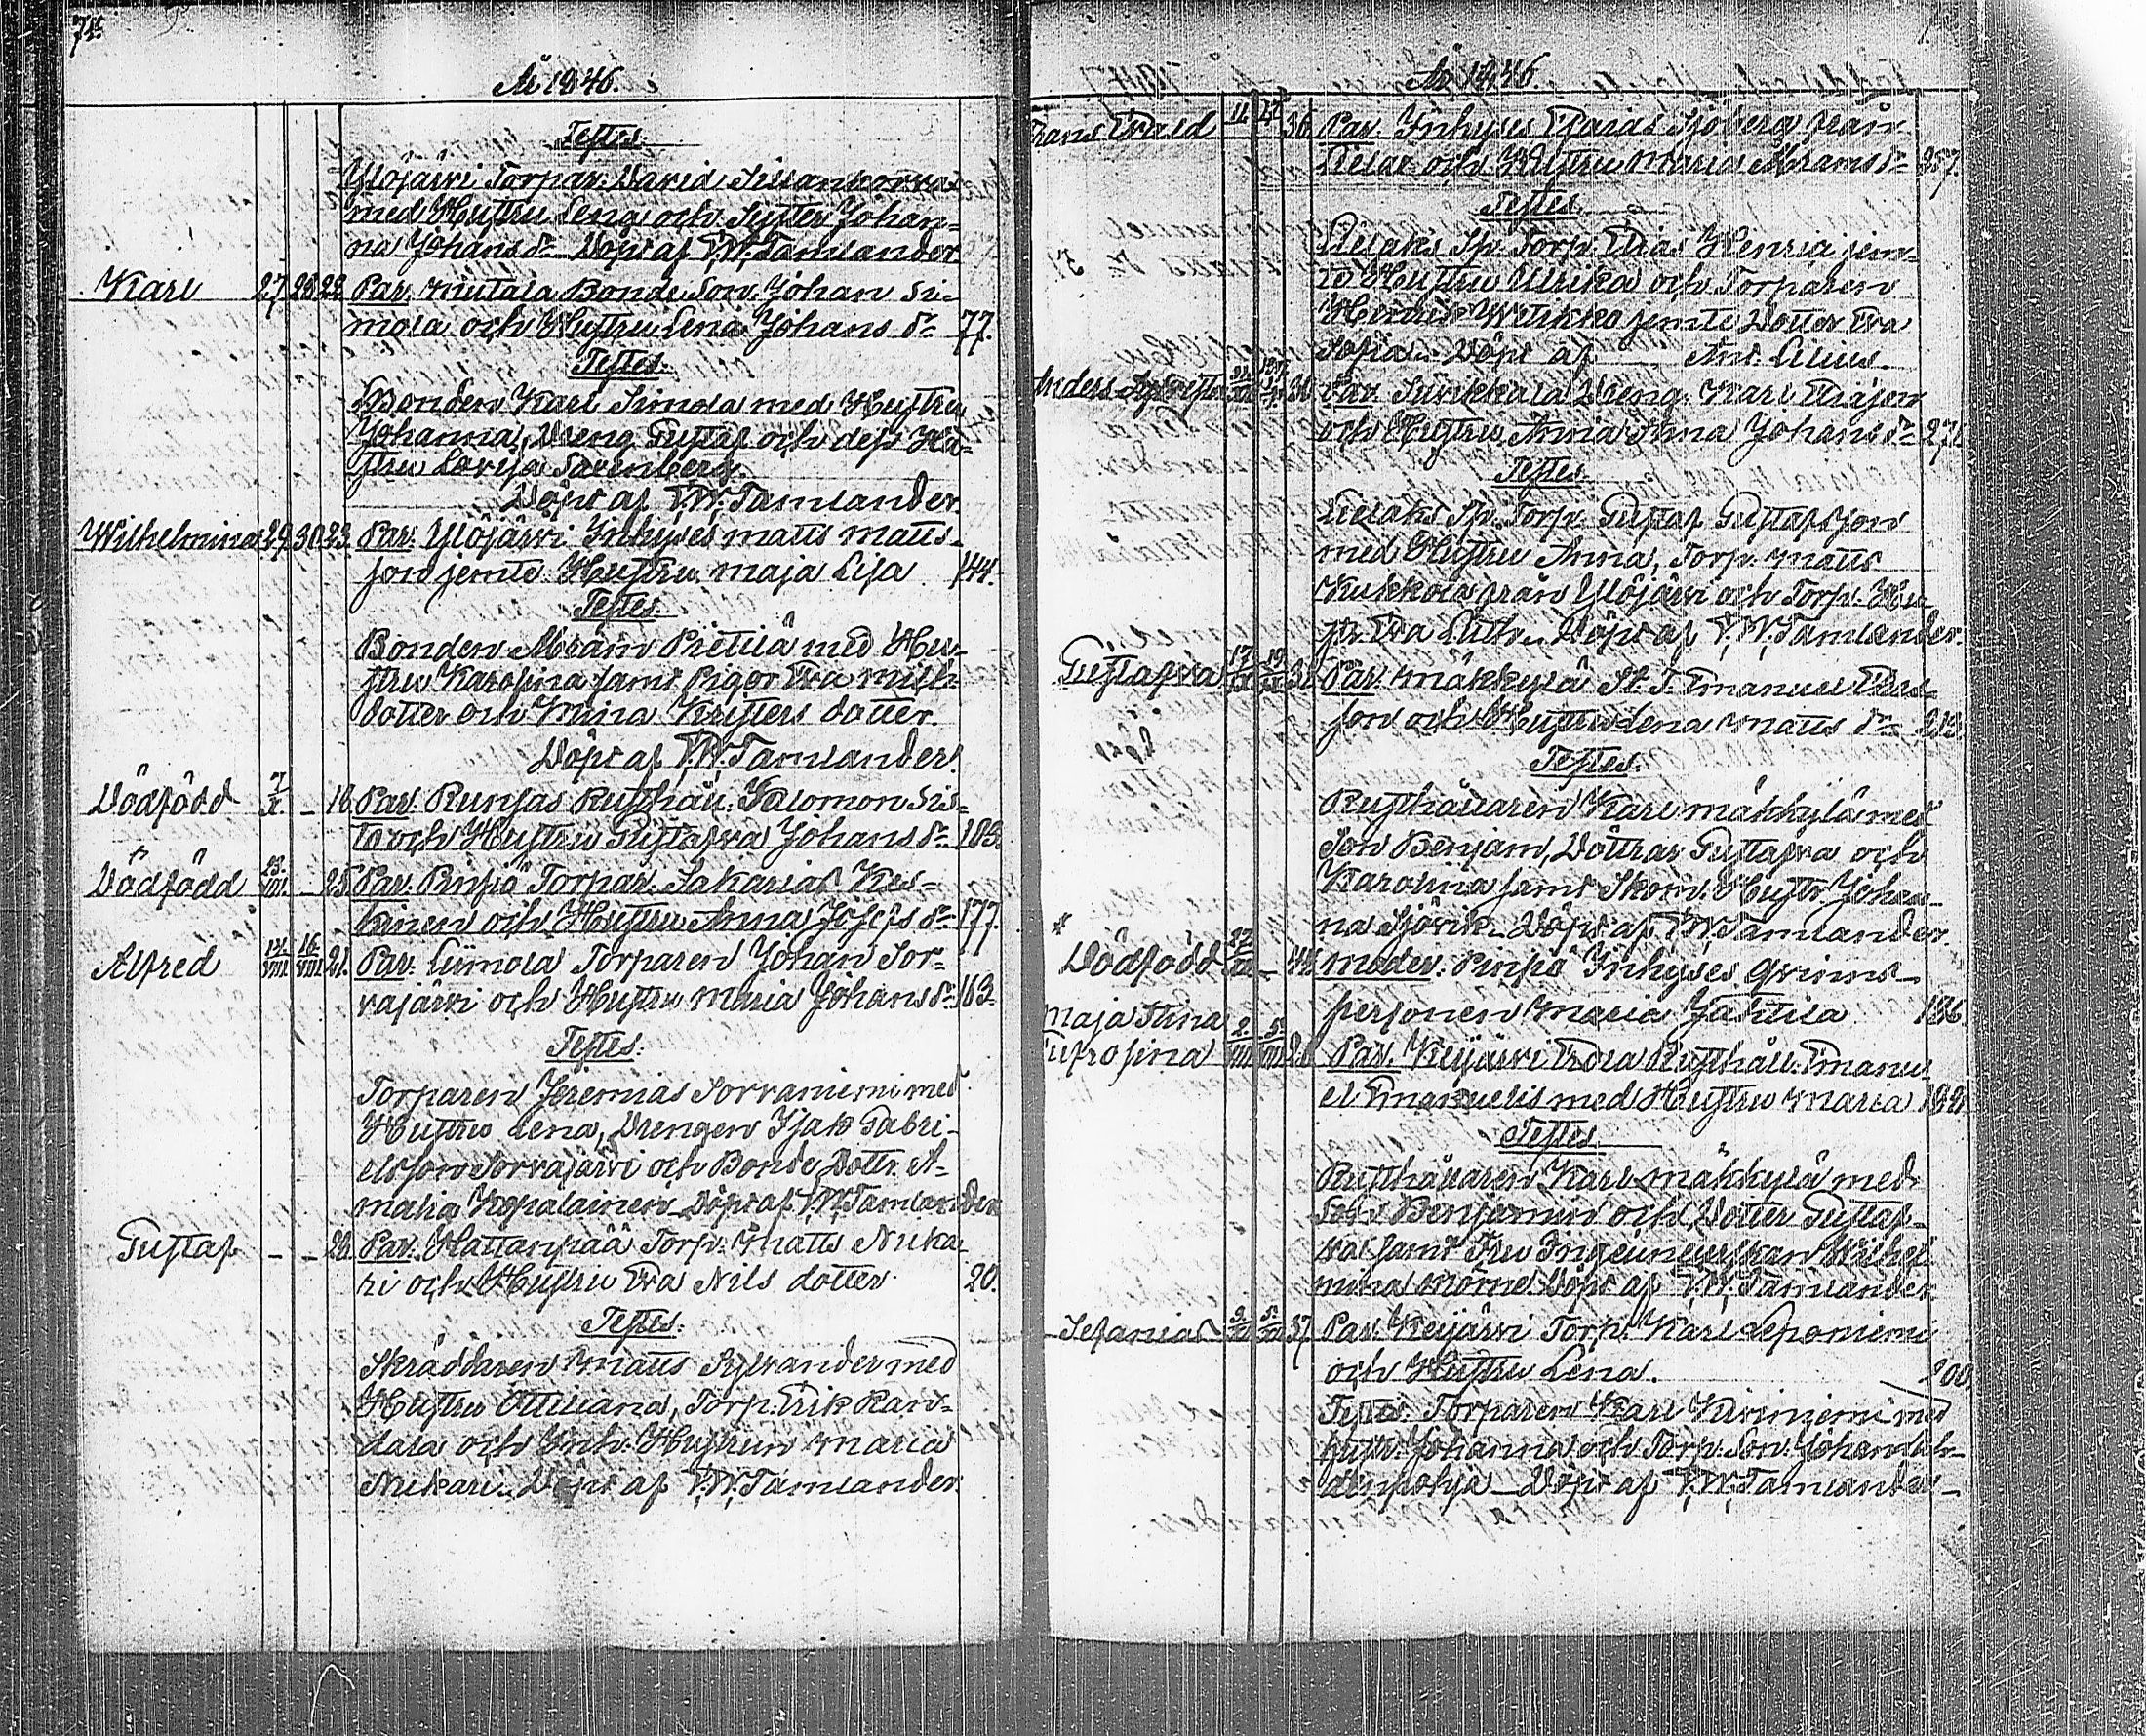 74.
År 1846.
Testes.
Ylöjärvi Torpar. David Sillankorva
med Hustru Lena och Syster Johan-
na Johans dr. Döpt af F.W. Tamlander
Karl 27 28 23. Par. Mutala Bonde Son. Johan Si-
mola och Hustru Lena Johans dr. 77.
Testes.
Bonden Karl Simola med Hustru
Johanna, Dreng Gustaf och dess Hu-
stru Lovisa
Döpt af F.W. Tamlander.
Wilhelmina 29. 30. 23. Par. Ylöjärvi Inhyses Matts Matts-
son jemte Hustru Maja Lisa 144.
Testes.
Bonden Abram Pietilä med Hu-
stru Karolina samt Pigor Eva Mill-
dotter och Mina Kristers dotter.
Döpt af F.W. Tamlander.
Dödfödd 7/X. – 18. Par. Runsas Rusthåll. Salomon Sis-
to och Hustru Gustafva Johans dr. 103.
Dödfödd 23./VIII. – 25. Par. Pinsiö Torpar. Sakarias Kes-
kinen och Hustru Anna Josefs dr. 177.
Alfred 14/VIII 16/VIII 21. Par. Limola Torparen Johan Sor-
vajärvi och Hustru Maria Johans dr. 163.
Testes.
Torparen Jeremias Sorvaniemi med
Hustru Lena, Drengen Isak Gabri-
elsson Sorvajärvi och Bonde Dottr. A-
malia Kopalainen. Döpt af F.W. Tamlander
Gustaf – – 20. Par. Hattanpää Torp. Matts Nuka-
ri och Hustru Eva Nils dotter. 20.
Testes.
Skräddaren Matts Sylvander med
Hustru Ottiliana, Torp. Erik Ran-
dala och Inh. Hustrun Maria
Nukari. Döpt af F.W. Tamlander.
År 1846.
Frans Evald 11. 36. Par. Inhyses Esaias Sjöberg från
Lielax och Hustru Maria Abrams dr. 257.
Testes.
Lielaks Sp. Torp. Elias Henric jem-
te Hustru Ulrika och Torparen
Henrik Wetikko jemte Dotter Eva
Sofia. Döpt af Ant. Lilius.
Anders Sylvester Par. Siivikkala Dreng. Karl
och Hustru Anna Johans dr. 271.
Testes.
Lielaks Sp. Torp. Gustaf Gustafsson
med Hustru Anna, Torp. Matts
Kukkola från Ylöjärvi och Torp. Hu-
str. Eva Döpt af F.W. Tamlander.
Gustafva Par. Mäkkylä St. T. Emanuel
son och Hustru Lena Matts dr. 212.
Testes.
Rusthållaren Karl Mäkkylä med
Son Benjam, Döttrar Gustafva och
Karolina samt Skom. Hustr. Johan-
na Sjövik. Döpt af F.W. Tamlander.
Dödfödd – 44. Moder. Pinsiö Inhyses Qvinns-
personen Maria Jaskila 186.
Maja Stina 2. 5.
Eufrosina VIII VIII Par. Keijärvi Erola Rusthåll. Emanu-
el Emanuelis med Hustru Maria 198.
Testes.
Rusthållaren Karl Mäkkylä med
Son Benjamin och Dotter Gustaf-
va samt Fru Ingeniuerskan Wilhel-
mina Mörne. Döpt af F.W. Tamlander.
Sefanias 37. Par. Keijärvi Torp. Karl Leponiemi
och Hustru Lena. 200.
Testes. Torparen Karl Kiviniemi med
Hustr. Johanna och Torp. Son. Johan Lah-
denpohja. Döpt af F.W. Tamlander.